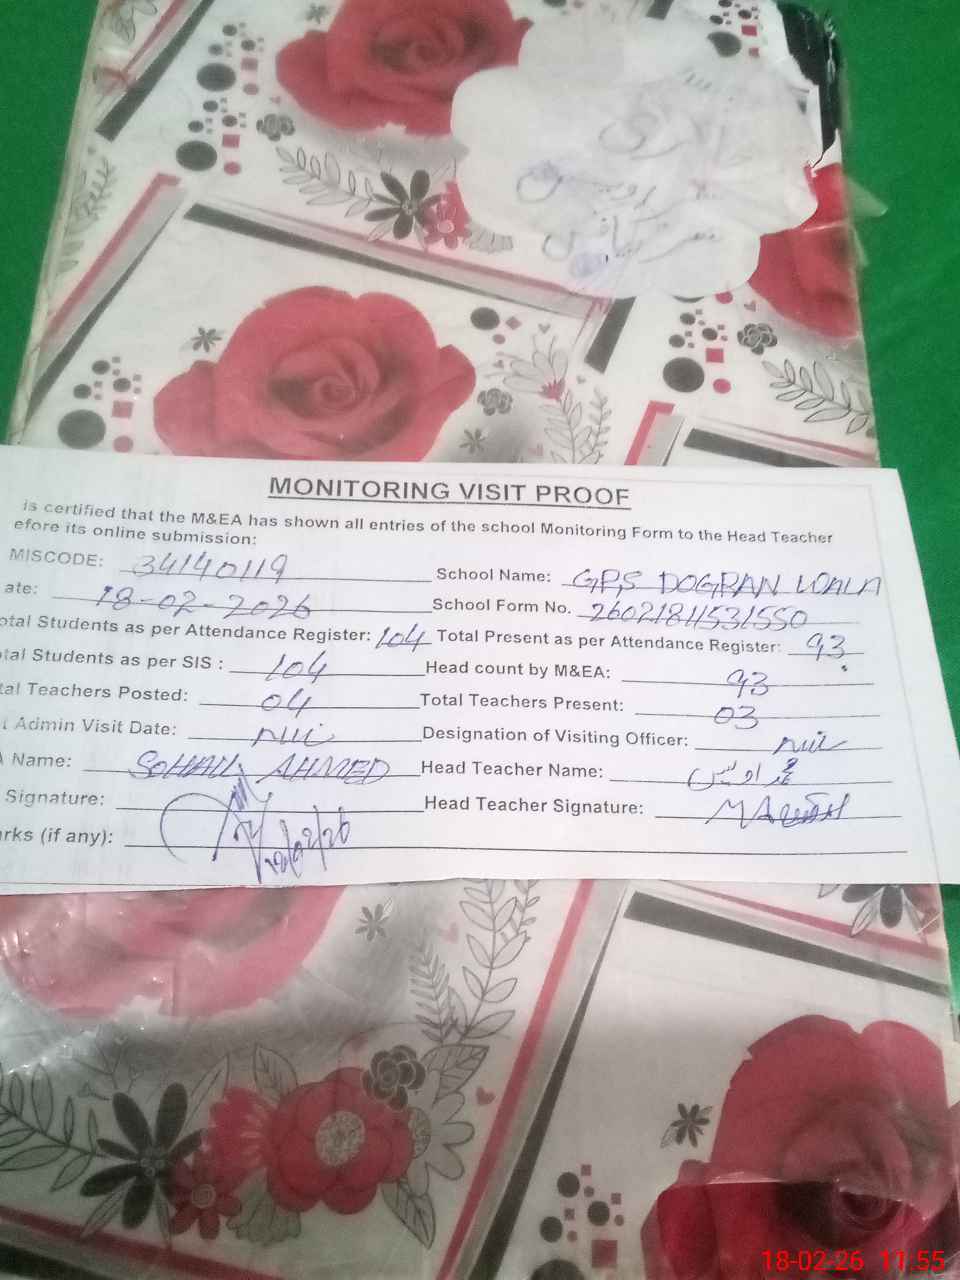 حاضری
MONITORING VISIT PROOF
is certified that the M&EA has shown all entries of the school Monitoring Form to the Head Teacher
efore its online submission:
MISCODE: 34140119 School Name: GPS DOGRAN WALA
ate: 18-02-2026 School Form No. 26021811531550
otal Students as per Attendance Register: 104 Total Present as per Attendance Register: 93
tal Students as per SIS : 104 Head count by M&EA: 93
tal Teachers Posted: 04 Total Teachers Present: 03
t Admin Visit Date: nil Designation of Visiting Officer: nil
Name: SOHAIL AHMED Head Teacher Name: محمد اویس
Signature: Head Teacher Signature:
rks (if any):
18-02-26 11:55